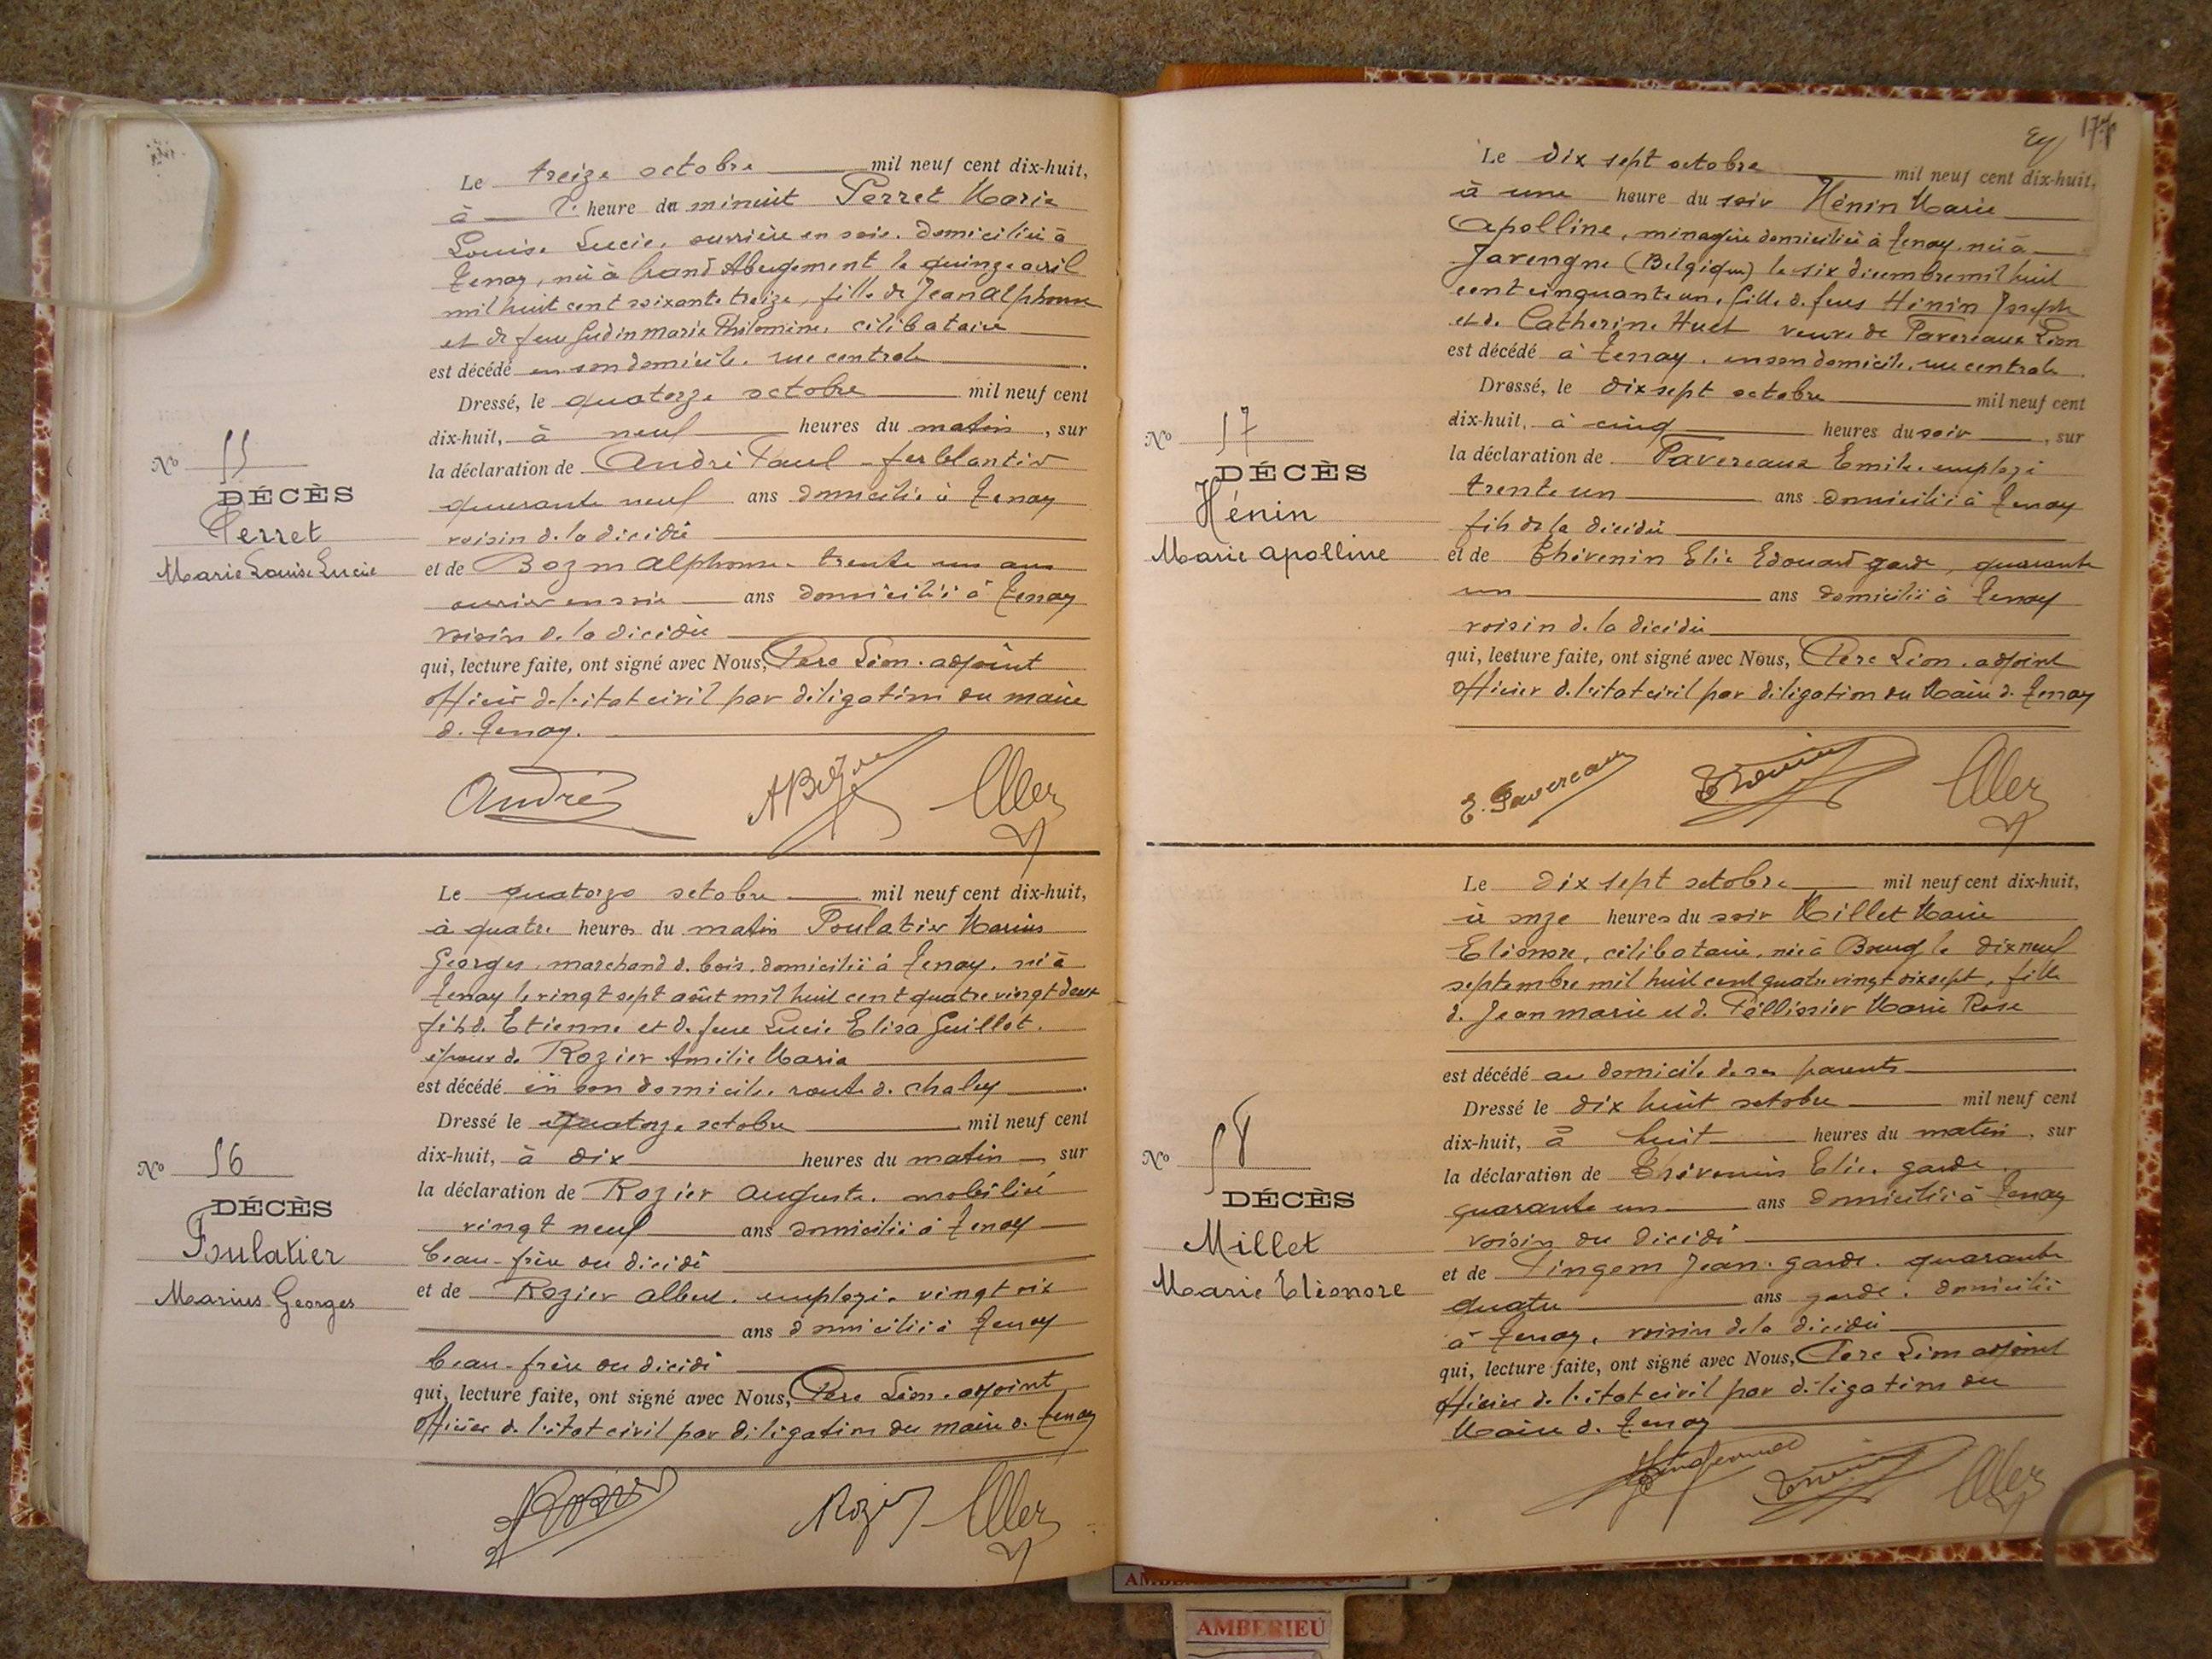 Le treize octobre mil neuf cent dix-huit,
à l' heure de minuit Perret Marie
Louise Lucie, ouvrière en soie, domiciliée à
Tenay, née à Grand Abergement le quinze avril
mil huit cent soixante treize, fille de Jean Alphonse
et de feue Gudin Marie Philomène, célibataire
est décédé en son domicile, rue centrale
Dressé, le quatorze octobre mil neuf cent
dix-huit, à neuf heures du matin, sur
la déclaration de André Paul ferblantier
quarante neuf ans domicilié à Tenay
voisin de la décédée
et de Bozon Alphonse trente un ans
ouvrier en soie ans domicilié à Tenay
voisin de la décédée
qui, lecture faite, ont signé avec Nous, Père Léon, adjoint
officier de l'état civil par délégation du maire
de Tenay.
André
Nº 55
DÉCÈS
Perret
Marie Louise Lucie
Le quatorze octobre mil neuf cent dix-huit,
à quatre heures du matin Poulatier Marius
Georges, marchand de bois, domicilié à Tenay, né à
Tenay le vingt sept août mil huit cent quatre vingt deux
fils de Etienne et de feue Lucie Elisa Guillot,
époux de Rozier Amélie Maria
est décédé en son domicile, route de Chaley
Dressé le quatorze octobre mil neuf cent
dix-huit, à dix heures du matin, sur
la déclaration de Rozier Auguste, mobilisé
vingt neuf ans domicilié à Tenay
beau-frère du décédé
et de Rozier Albert, employé, vingt six
ans domicilié à Tenay
beau-frère du décédé
qui, lecture faite, ont signé avec Nous, Père Léon, adjoint
officier de l'état civil par délégation du maire de Tenay
Rozier
Nº 56
DÉCÈS
Poulatier
Marius Georges
177
Le dix sept octobre mil neuf cent dix-huit,
à une heure du soir Hénin Marie
Apolline, ménagère domiciliée à Tenay, née à
Javengne (Belgique) le six décembre mil huit
cent cinquante un, fille de feus Hénin Joseph
et de Catherine Huet veuve de Pavereaux Léon
est décédé à Tenay, en son domicile, rue centrale
Dressé, le dix sept octobre mil neuf cent
dix-huit, à cinq heures du soir, sur
la déclaration de Pavereaux Emile, employé
trente un ans domicilié à Tenay
fils de la décédée
et de Thévenin Elie Edouard garde, quarante
un ans domicilié à Tenay
voisin de la décédée
qui, lecture faite, ont signé avec Nous, Père Léon, adjoint
officier de l'état civil par délégation du Maire de Tenay
E. Pavereaux
Nº 57
DÉCÈS
Hénin
Marie Apolline
Le dix sept octobre mil neuf cent dix-huit,
à onze heures du soir Millet Marie
Eléonore, célibataire, née à Bourg le dix neuf
septembre mil huit cent quatre vingt dix sept, fille
de Jean Marie et de Pellissier Marie Rose
est décédé au domicile de ses parents
Dressé le dix huit octobre mil neuf cent
dix-huit, à huit heures du matin, sur
la déclaration de Thévenin Elie, garde
quarante un ans domicilié à Tenay
voisin du décédé
et de Pingem Jean, garde, quarante
quatre ans garde, domicilié
à Tenay, voisin de la décédée
qui, lecture faite, ont signé avec Nous, Père Léon adjoint
officier de l'état civil par délégation du
Maire de Tenay
Nº 58
DÉCÈS
Millet
Marie Eléonore
AMBERIEU